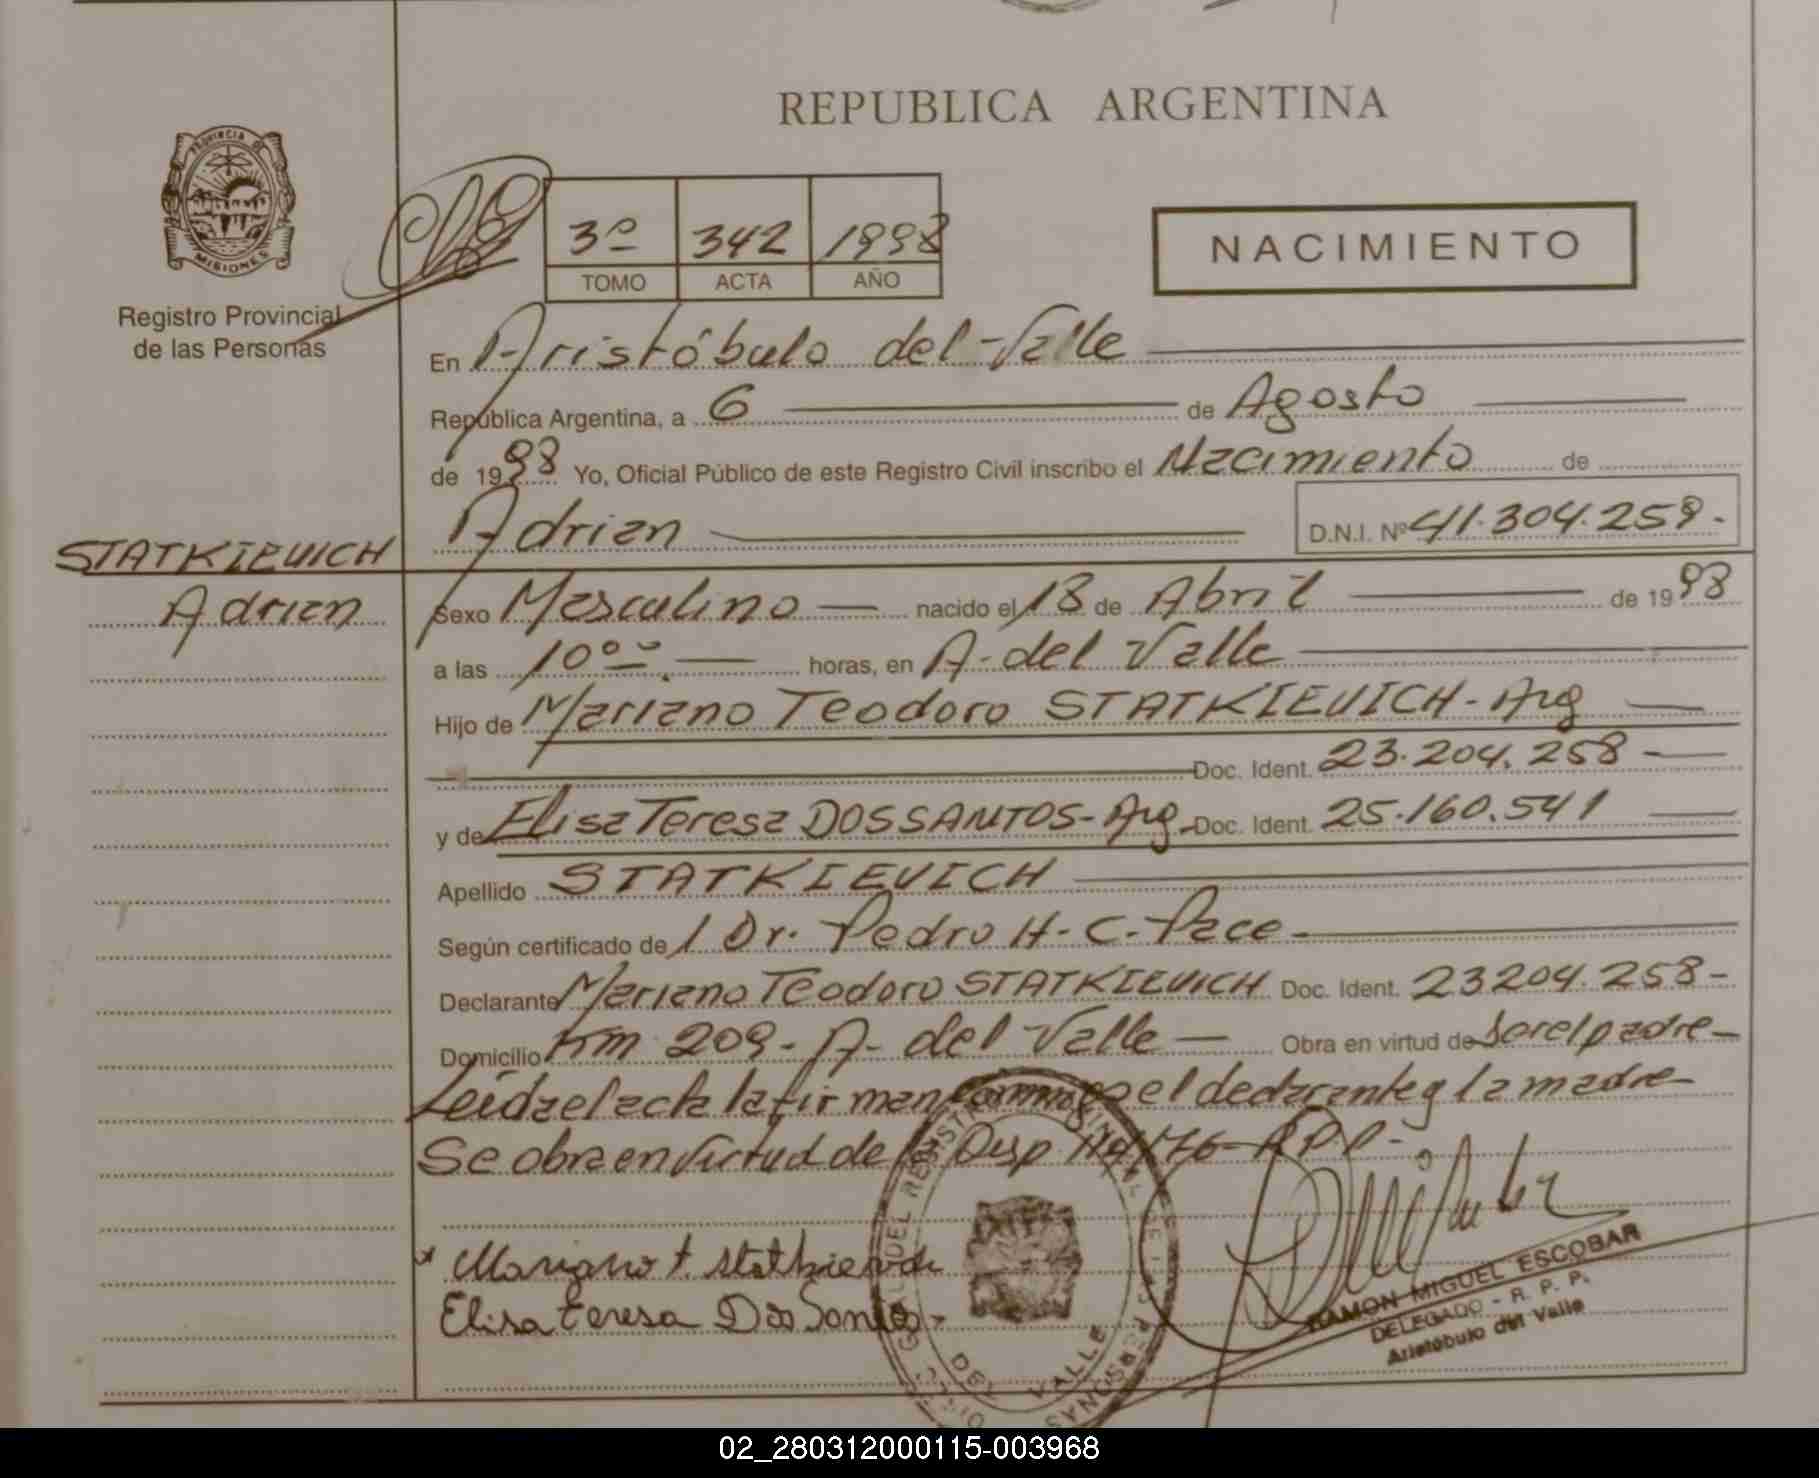 REPUBLICA ARGENTINA
PROVINCIA DE
MISIONES
Registro Provincial
de las Personas
3º 342 1998
TOMO ACTA AÑO
NACIMIENTO
En Aristóbulo del Valle
República Argentina, a 6 de Agosto
de 1998 Yo, Oficial Público de este Registro Civil inscribo el Nacimiento de
Adrian D.N.I. Nº 41.304.259.-
STATKIEVICH
Adrian
Sexo Masculino nacido el 18 de Abril de 1998
a las 10ºº horas, en A. del Valle
Hijo de Mariano Teodoro STATKIEVICH - Arg
Doc. Ident. 23.204.258
y de Elisa Teresa DOSSANTOS - Arg. Doc. Ident. 25.160.541
Apellido STATKIEVICH
Según certificado de 1 Dr. Pedro H. C. Pace
Declarante Mariano Teodoro STATKIEVICH Doc. Ident. 23204.258-
Domicilio Km 209 - A. del Valle Obra en virtud de Ser el padre
Leída el acta la firman conmigo el declarante y la madre
Se obra en virtud de la Disp. 114/76 - R.P.P.-
Mariano t. Statkievich
Elisa teresa Dos Santos
DEL VALLE
RAMON MIGUEL ESCOBAR
DELEGADO - R. P. P.
Aristóbulo del Valle
02_280312000115-003968